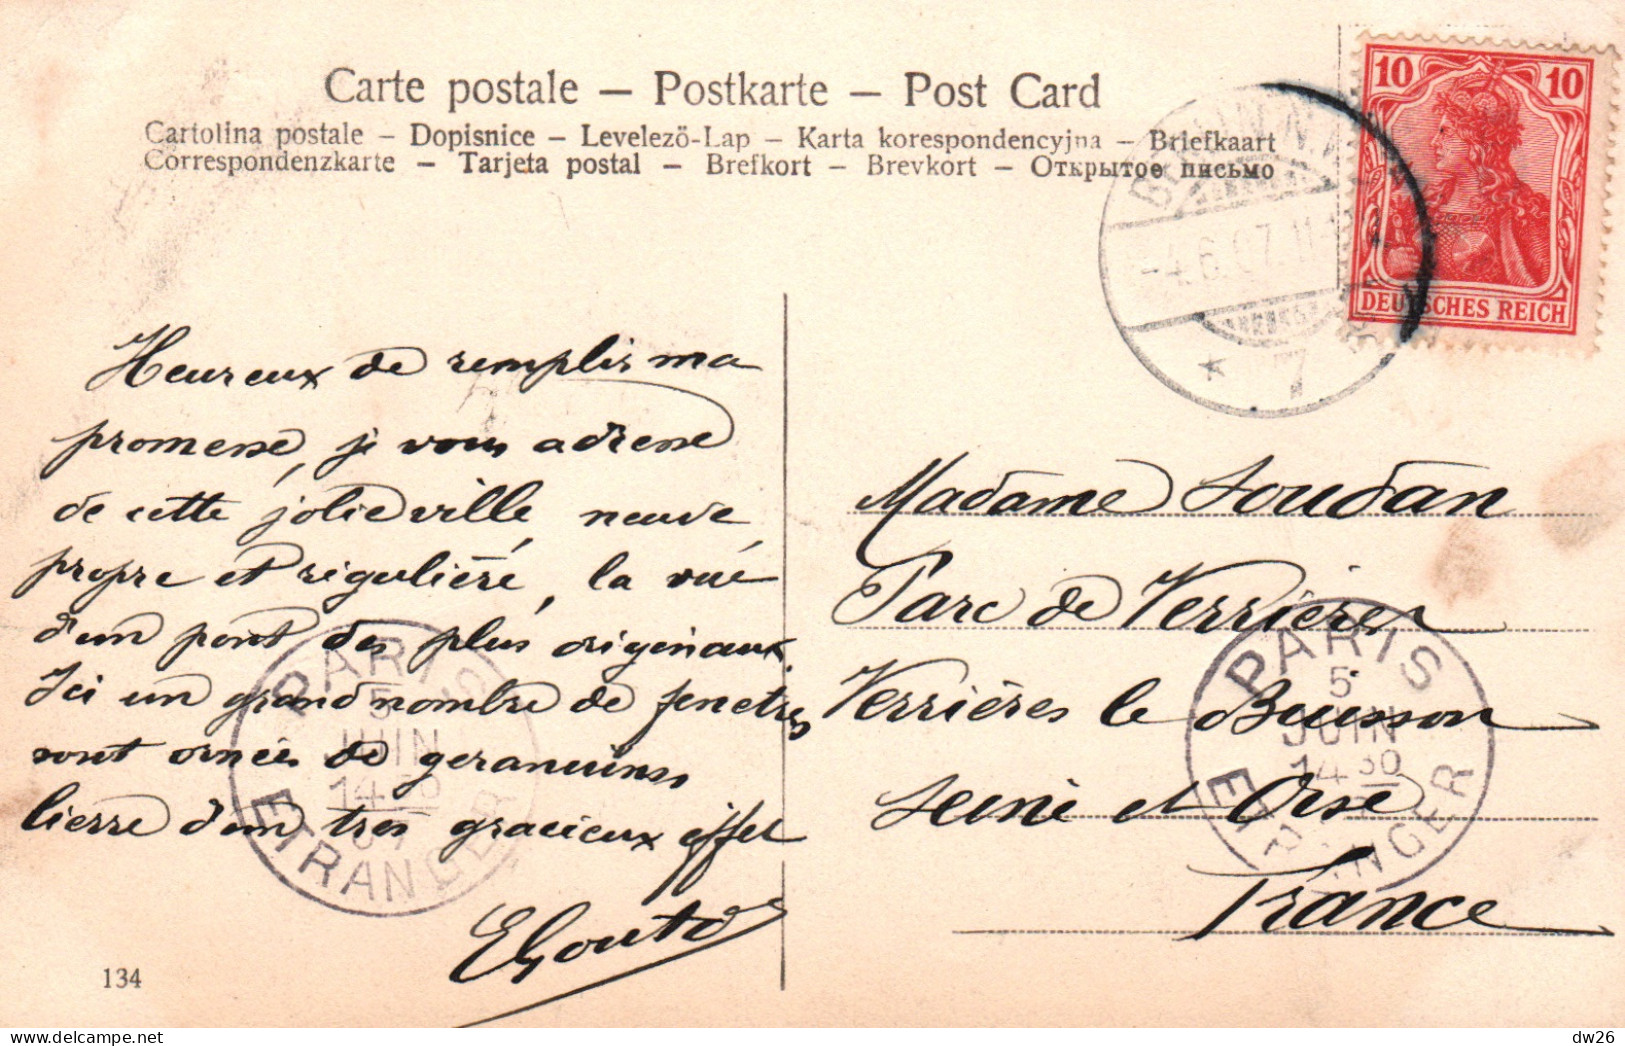 Carte postale – Postkarte – Post Card
Cartolina postale – Dopisnice – Levelezö-Lap – Karta korespondencyjna – Briefkaart
Correspondenzkarte – Tarjeta postal – Brefkort – Brevkort – Открытое письмо
10 10
DEUTSCHES REICH
BERLIN N.W.
-4.6.07.11-12
* 7
Heureux de remplir ma
promesse, je vous adresse
de cette jolie ville, neuve,
propre et régulière, la vue
d'un pont des plus originaux.
Ici un grand nombre de fenetres
sont ornées de geraniums
lierre d'un très gracieux effet
134
Madame Soudan
Parc de Verrières
Verrières le Buisson
Seine et Oise
France
PARIS
5
JUIN
14 30
07
ETRANGER
PARIS
5
JUIN
14 30
ETRANGER
dw26